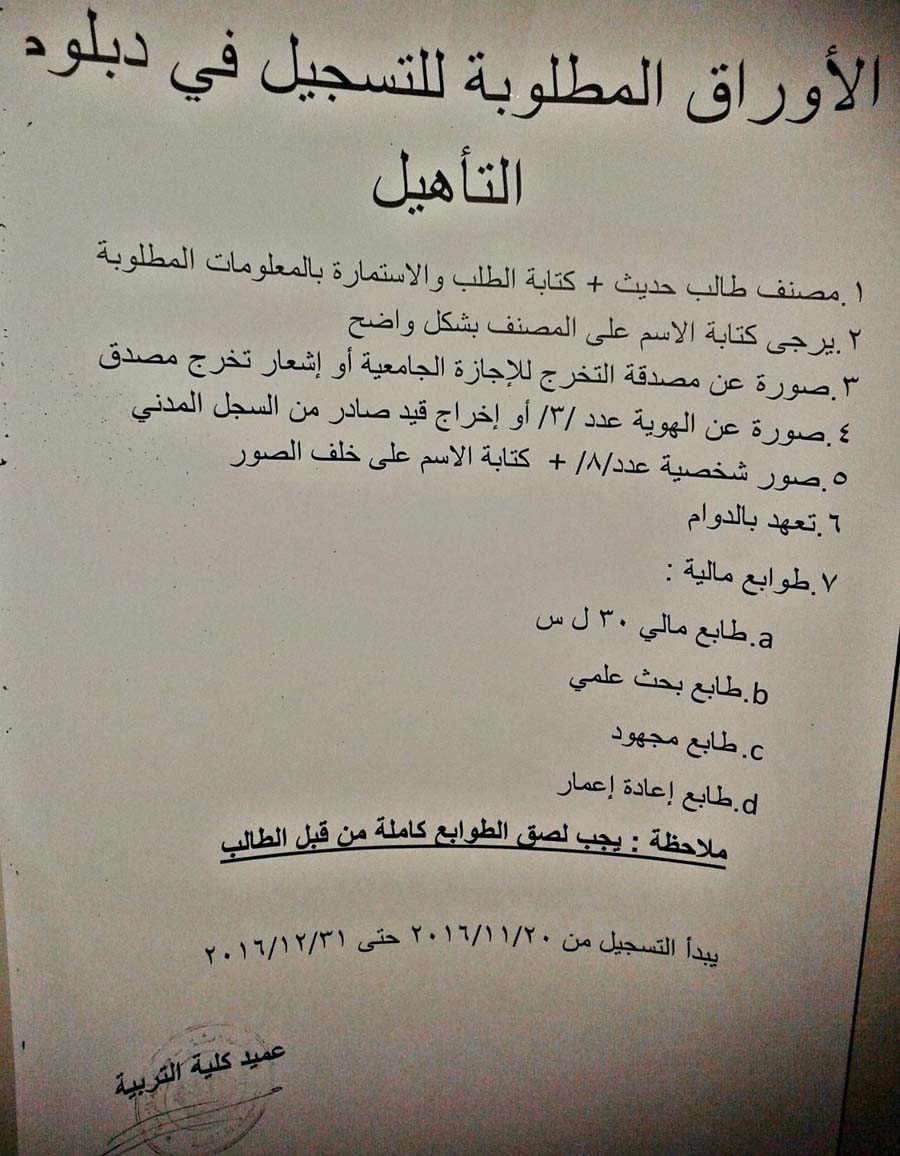 الأوراق المطلوبة للتسجيل في دبلوم
التأهيل
١.مصنف طالب حديث + كتابة الطلب والاستمارة بالمعلومات المطلوبة
٢.يرجى كتابة الاسم على المصنف بشكل واضح
٣.صورة عن مصدقة التخرج للإجازة الجامعية أو إشعار تخرج مصدق
٤.صورة عن الهوية عدد /٣/ أو إخراج قيد صادر من السجل المدني
٥.صور شخصية عدد/٨/ + كتابة الاسم على خلف الصور
٦.تعهد بالدوام
٧.طوابع مالية :
a.طابع مالي ٣٠ ل س
b.طابع بحث علمي
c.طابع مجهود
d.طابع إعادة إعمار
ملاحظة : يجب لصق الطوابع كاملة من قبل الطالب
يبدأ التسجيل من ٢٠١٦/١١/٢٠ حتى ٢٠١٦/١٢/٣١
عميد كلية التربية